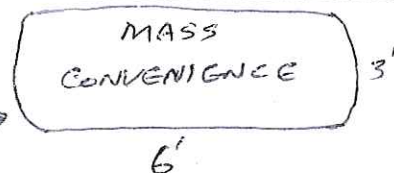 MASS
CONVENIENCE
3'
6'